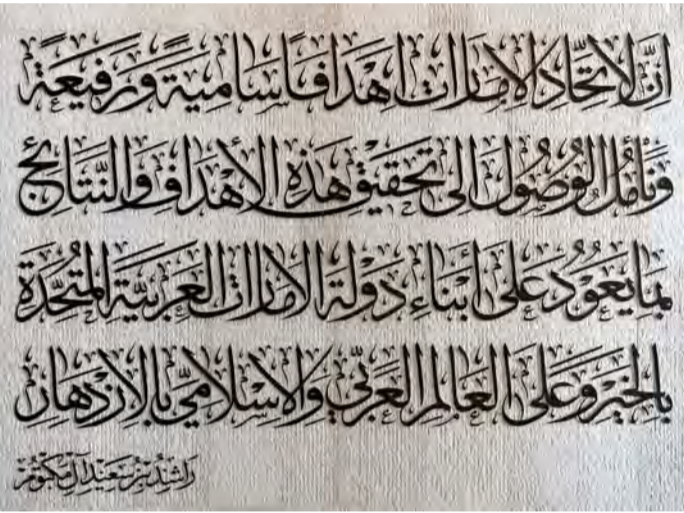 إنّ لاتحاد الإمارات اهدافاً ساميةً ورفيعةً
ونأمل الوصول الى تحقيق هذه الأهداف والنتائج
بما يعود على أبناء دولة الامارات العربية المتحدة
بالخير وعلى العالم العربي والاسلامي بالازدهار
راشد بن سعيد آل مكتوم